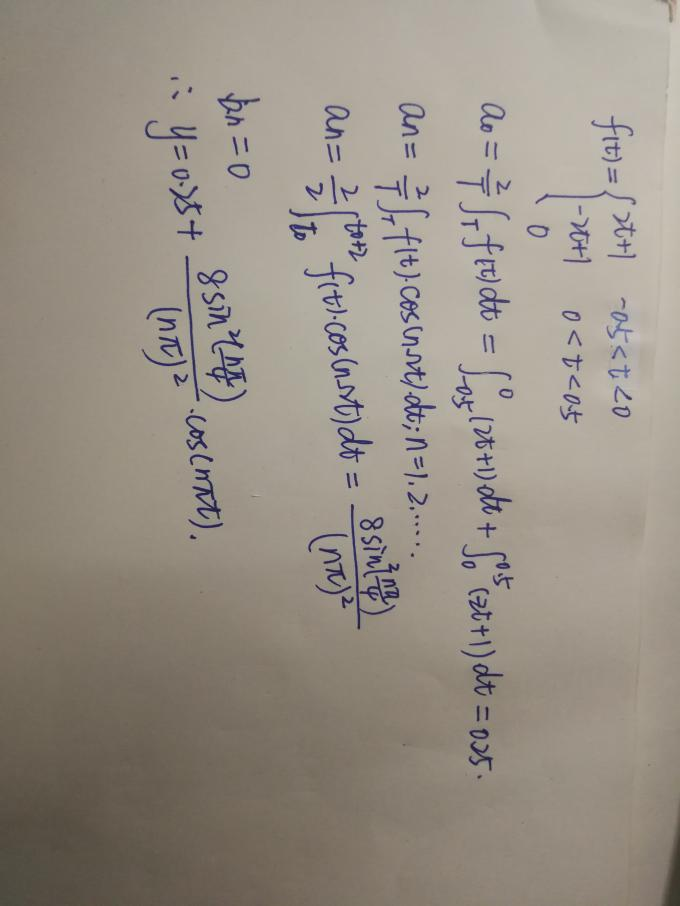 f(t) = { 2t+1 -0.5<t<0
-2t+1 0<t<0.5
0
a0 = 2/T ∫T f(t)dt = ∫-0.5^0 (2t+1)dt + ∫0^0.5 (2t+1)dt = 0.25.
an = 2/T ∫T f(t)·cos(nΩt)dt; n=1.2......
an = 2/2 ∫t0^t0+2 f(t)·cos(nΩt)dt = 8sin²(nπ/4)/(nπ)²
bn = 0
∴ y = 0.25 + 8sin²(nπ/4)/(nπ)² ·cos(nπt).